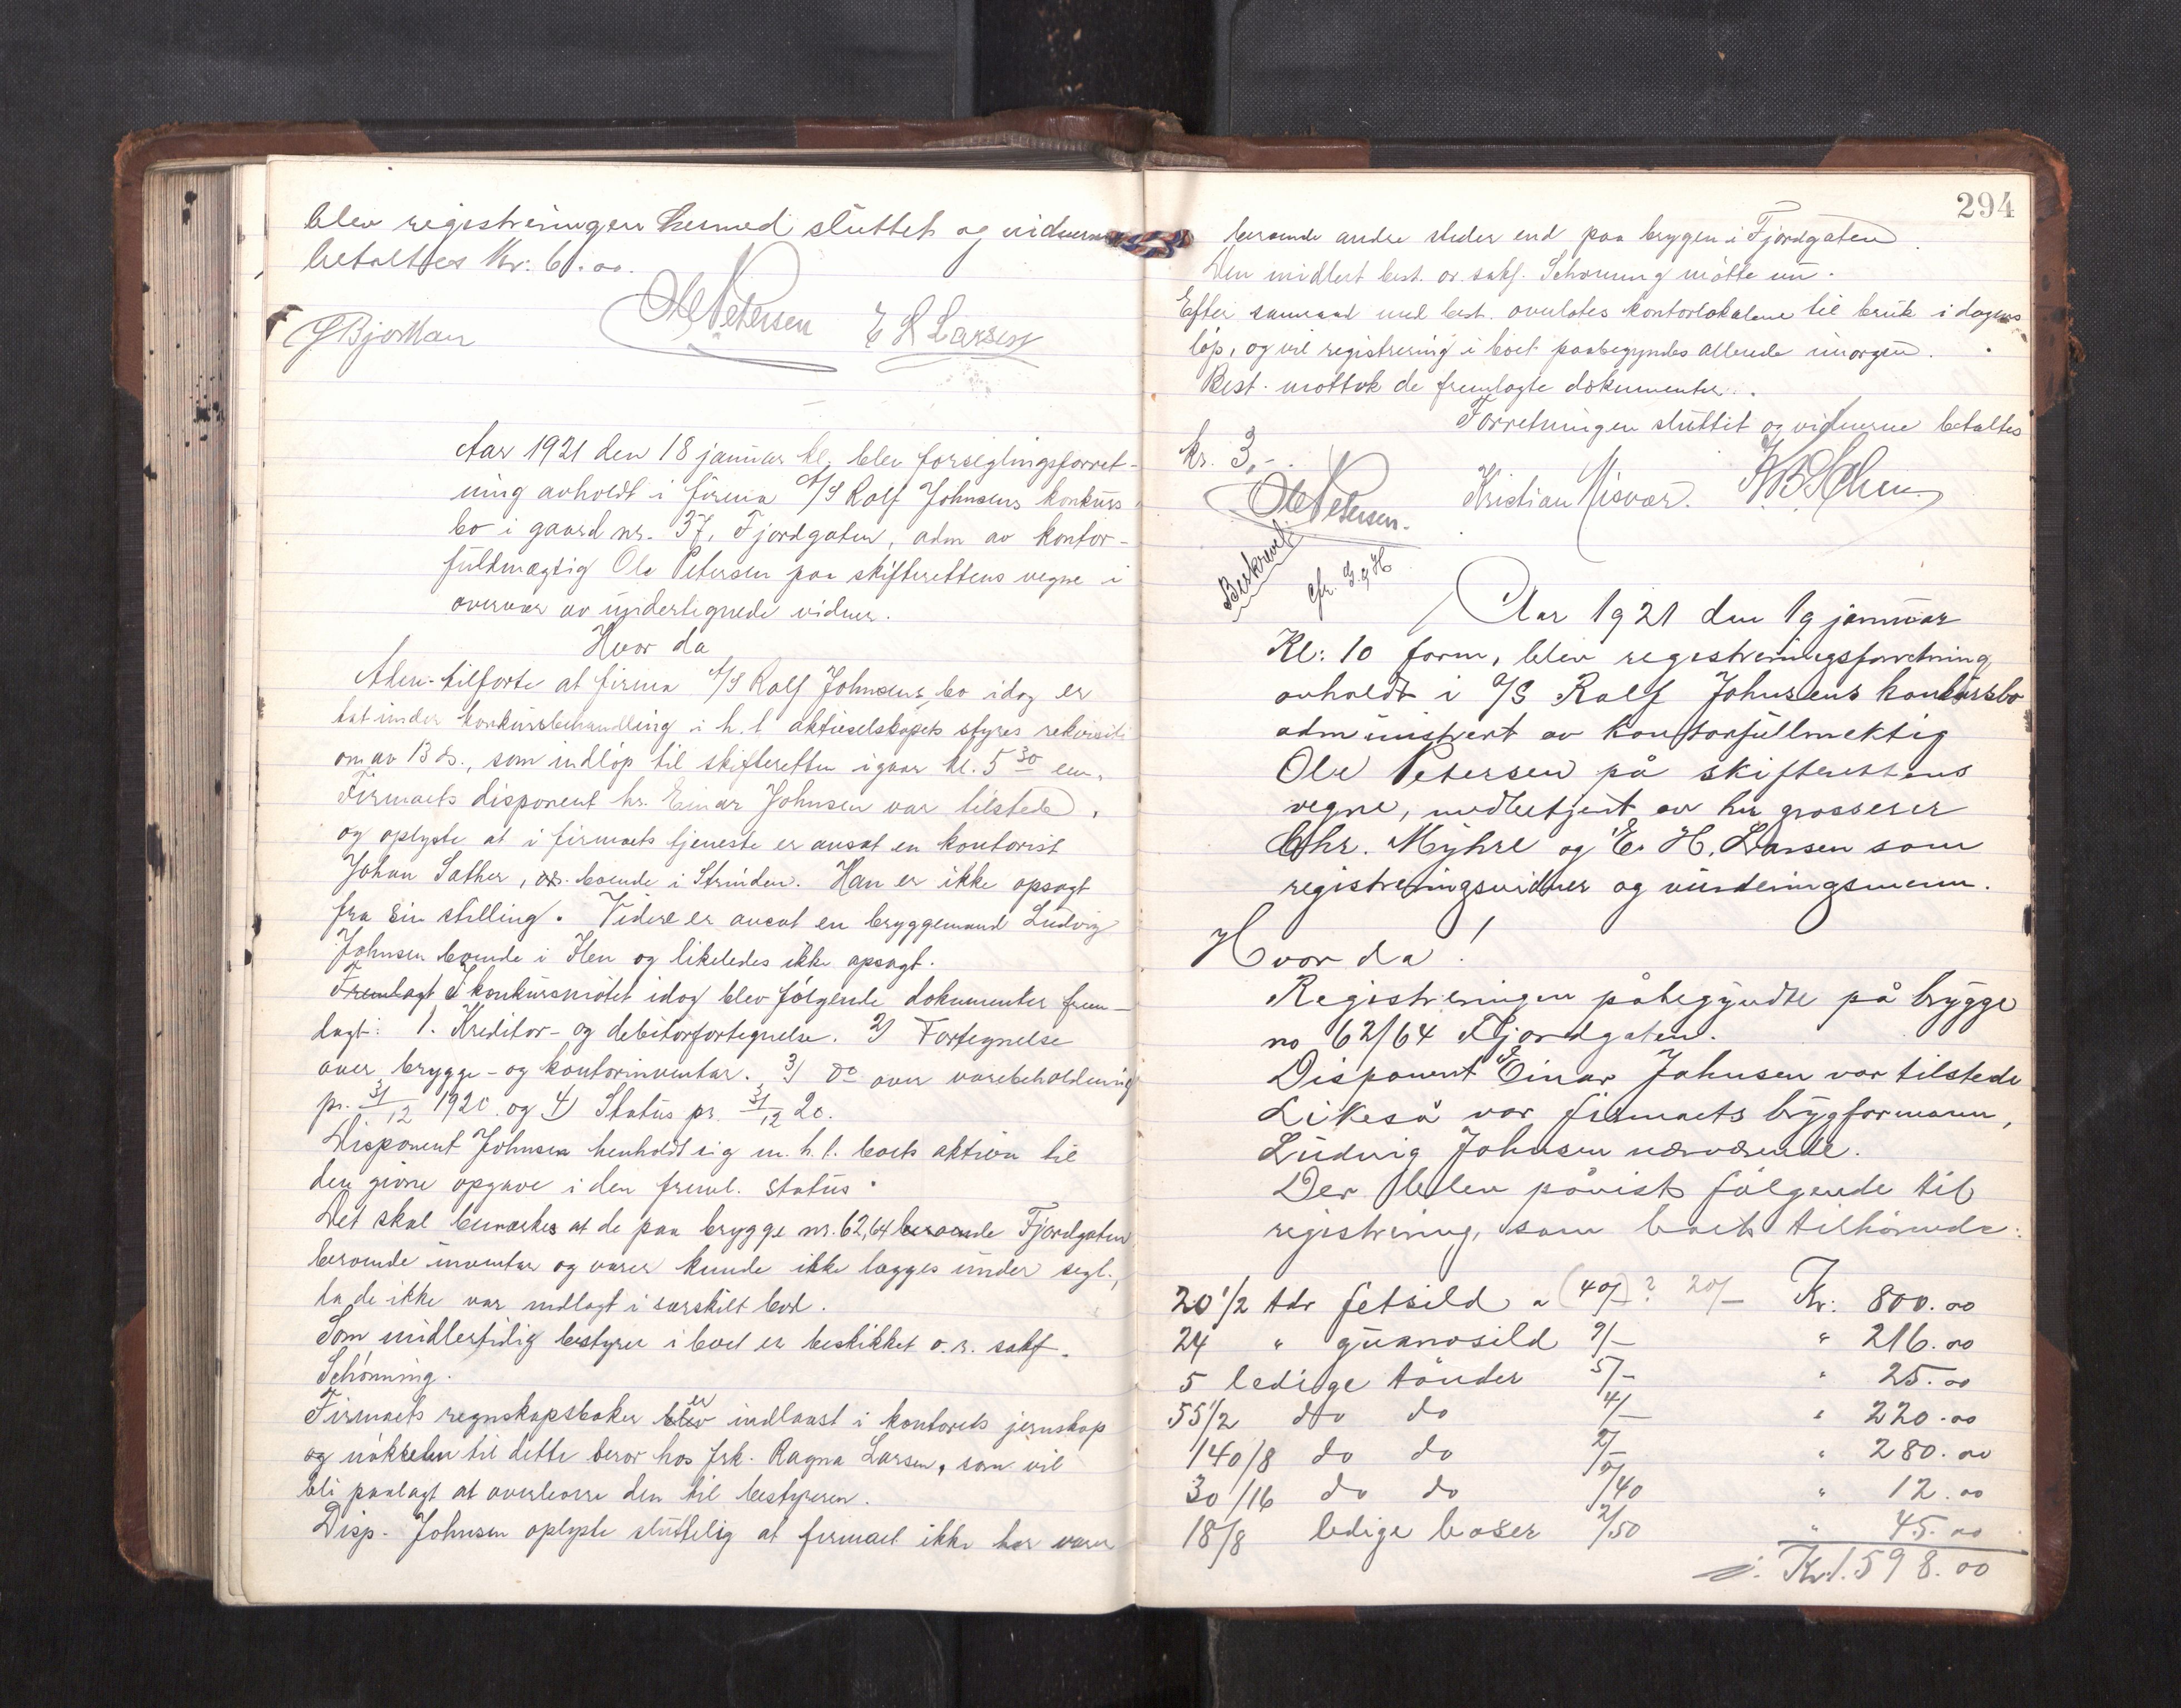 blev registreringen hermed sluttet og vidnerne
betaltes Kr: 6.00.
Ole Petersen E H Larsen
G Bjorkan
Aar 1921 den 18 januar kl. blev forseglingsforret-
ning avholdt i firma A/S Rolf Johnsens konkurs
bo i gaard nr. 37, Fjordgaten, adm av kontor-
fuldmægtig Ole Petersen paa skifterettens vegne i
overvær av undertegnede vidner.
Hvor da
Adm. tilførte at firma A/S Rolf Johnsens bo idag er
tat under konkursbehandling i h. t aktieselskapets styres rekvisiti
on av 13 ds., som indløp til skifteretten igaar kl. 5 30 em.
Firmaets disponent hr. Einar Johnsen var tilstede,
og oplyste at i firmaets tjeneste er ansat en kontorist
Johan Sather, boende i Strinden. Han er ikke opsagt
fra sin stilling. Videre er ansat en bryggemand Ludvig
Johnsen boende i Ilen og likeledes ikke opsagt.
Fremlagt I konkursmötet idag blev følgende dokumenter frem-
lagt: 1. Kreditor- og debitorfortegnelse. 2) Fortegnelse
over brygge- og kontorinventar. 3) do over varebeholdning
pr. 31/12 1920 og 4) Status pr. 31/12 20.
Disponent Johnsen henholdt sig m. h. t. boets aktiva til
den givne opgave i den freml. status.
Det skal bemerkes at de paa brygge nr. 62,64 beroende Fjordgaten
beroende inventar og varer kunde ikke lægges under segl,
da de ikke var indlagt i særskilt bod.
Som midlertidig bestyrer i boet er beskikket o.r. sakf.
Schönning.
Firmaets regnskapsbøker blev er indlaast i kontorets jernskap
og nökkelen til dette beror hos frk. Ragna Larsen, som vil
bli paalagt at overlevere den til bestyreren.
Disp. Johnsen oplyste sluttelig at firmaet ikke har varer
294
beroende andre steder end paa bryggen i Fjordgaten.
Den midlert best. or. sakf. Schønning møtte nu.
Efter samraad med best. overlates kontorlokalene til bruk i dagens
løp, og vil registrering i boet paabegyndes allerede imorgen.
Best. mottok de fremlagte dokumenter.
Forretningen sluttet og vidnerne betaltes
kr. 3,-.
Ole Petersen. Kristian Misvær.
Beskrevet
Aar 1921 den 19 januar
Kl: 10 form, blev registreringsforretning
avholdt i A/S Rolf Johnsens konkursbo
administrert av kontorfullmektig
Ole Petersen på skifterettens
vegne, medbetjent av hr grosserer
Chr. Myhre og E. H. Larsen som
registreringsvidner og vurderingsmenn.
Hvor da!
Registreringen påbegyndte på brygge
no 62/64 Fjordgaten.
Disponent Einar Johnsen var tilstede
Likeså var firmaets brygformann,
Ludvig Johnsen nærværende.
Der blev påvist følgende til
registrering, som boet tilhørende:
20 1/2 tdr fetsild a (40/-)? 20/- Kr: 800.00
24 " guanosild 9/- " 216.00
5 ledige tønder 5/- " 25.00
55 1/2 do do 4/- " 220.00
140/8 do do 2/- " 280.00
30/16 do do 0/40 " 12.00
18/8 ledige baser 2/50 " 45.00
Kr 1.598.00